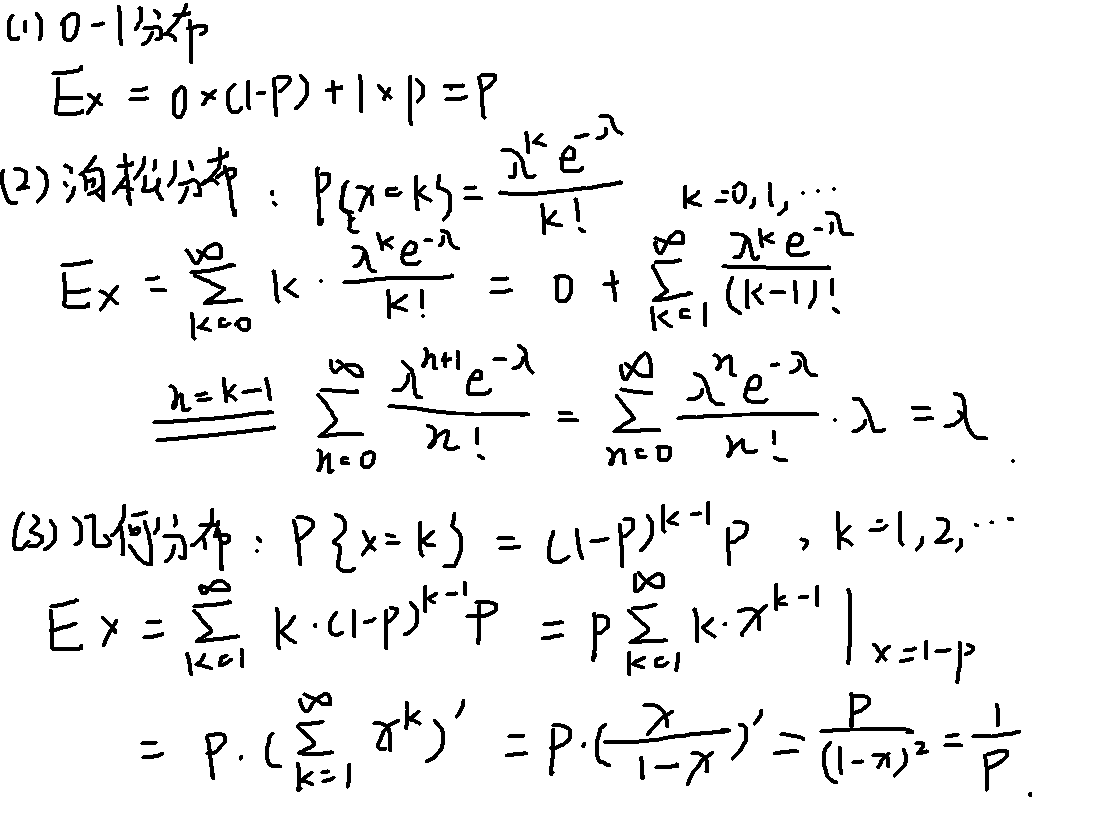 (1) 0-1分布
Ex = 0×(1-P)+1×p=P
(2) 泊松分布: P{x=k}=\frac{λ^k e^{-λ}}{k!} k=0,1,⋯
Ex = \sum_{k=0}^{∞} k·\frac{λ^k e^{-λ}}{k!} = 0 + \sum_{k=1}^{∞} \frac{λ^k e^{-λ}}{(k-1)!}
\xlongequal{n=k-1} \sum_{n=0}^{∞} \frac{λ^{n+1} e^{-λ}}{n!} = \sum_{n=0}^{∞} \frac{λ^n e^{-λ}}{n!}·λ = λ.
(3) 几何分布: P{x=k} = (1-p)^{k-1} p, k=1,2,⋯
Ex = \sum_{k=1}^{∞} k·(1-p)^{k-1} P = p \sum_{k=1}^{∞} k·x^{k-1} |_{x=1-p}
= P·(\sum_{k=1}^{∞} x^k)' = P·(\frac{x}{1-x})' = \frac{P}{(1-x)^2} = \frac{1}{P}.